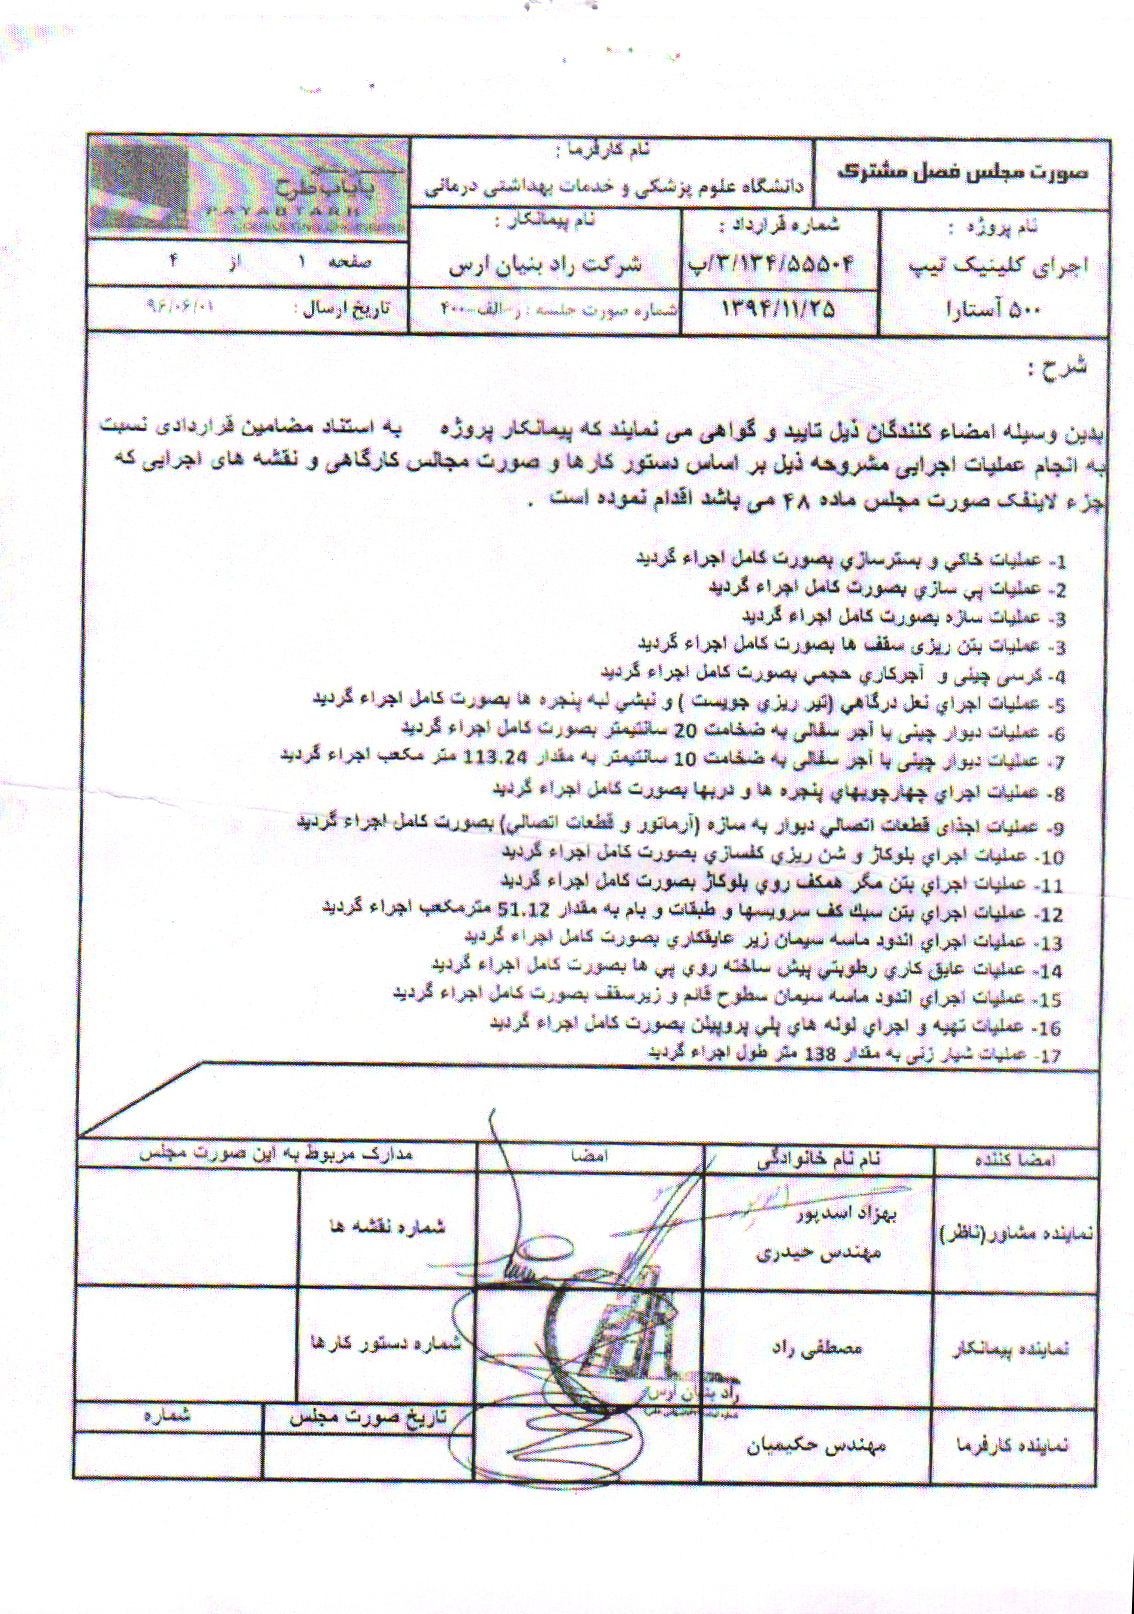 صورت مجلس فصل مشترک
نام کارفرما :
دانشگاه علوم پزشکی و خدمات بهداشتی درمانی
پایاب طرح
PAYAB TARH
نام پروژه :
اجرای کلینیک تیپ
۵۰۰ آستارا
شماره قرارداد :
۳/۱۳۴/۵۵۵۰۴/پ
۱۳۹۴/۱۱/۲۵
نام پیمانکار :
شرکت راد بنیان ارس
شماره صورت جلسه : ر-الف-۴۰۰
صفحه ۱ از ۴
تاریخ ارسال : ۹۶/۰۶/۰۱
شرح :
بدین وسیله امضاء کنندگان ذیل تایید و گواهی می نمایند که پیمانکار پروژه به استناد مضامین قراردادی نسبت
به انجام عملیات اجرایی مشروحه ذیل بر اساس دستور کارها و صورت مجالس کارگاهی و نقشه های اجرایی که
جزء لاینفک صورت مجلس ماده ۴۸ می باشد اقدام نموده است .
1- عملیات خاکي و بسترسازي بصورت کامل اجراء گردید
2- عملیات پي سازي بصورت کامل اجراء گردید
3- عملیات سازه بصورت کامل اجراء گردید
3- عملیات بتن ریزی سقف ها بصورت کامل اجراء گردید
4- کرسی چینی و آجرکاري حجمي بصورت کامل اجراء گردید
5- عملیات اجراي نعل درگاهي (تیر ریزي جویست ) و نبشي لبه پنجره ها بصورت کامل اجراء گردید
6- عملیات دیوار چینی با آجر سفالی به ضخامت 20 سانتیمتر بصورت کامل اجراء گردید
7- عملیات دیوار چینی با آجر سفالی به ضخامت 10 سانتیمتر به مقدار 113.24 متر مکعب اجراء گردید
8- عملیات اجراي چهارچوبهاي پنجره ها و دربها بصورت کامل اجراء گردید
9- عملیات اجذای قطعات اتصالي دیوار به سازه (آرماتور و قطعات اتصالي) بصورت کامل اجراء گردید
10- عملیات اجراي بلوکاژ و شن ریزي کفسازي بصورت کامل اجراء گردید
11- عملیات اجراي بتن مگر همکف روي بلوکاژ بصورت کامل اجراء گردید
12- عملیات اجراي بتن سبك کف سرویسها و طبقات و بام به مقدار 51.12 مترمکعب اجراء گردید
13- عملیات اجراي اندود ماسه سیمان زیر عایقکاري بصورت کامل اجراء گردید
14- عملیات عایق کاري رطوبتي پیش ساخته روي پي ها بصورت کامل اجراء گردید
15- عملیات اجراي اندود ماسه سیمان سطوح قائم و زیرسقف بصورت کامل اجراء گردید
16- عملیات تهیه و اجراي لوله هاي پلي پروپیلن بصورت کامل اجراء گردید
17- عملیات شیار زنی به مقدار 138 متر طول اجراء گردید
امضا کننده
نام نام خانوادگی
امضا
مدارک مربوط به این صورت مجلس
نماینده مشاور(ناظر)
بهزاد اسدپور
مهندس حیدری
شماره نقشه ها
نماینده پیمانکار
مصطفی راد
راد بنیان ارس
شماره دستور کارها
نماینده کارفرما
مهندس حکیمیان
تاریخ صورت مجلس
شماره